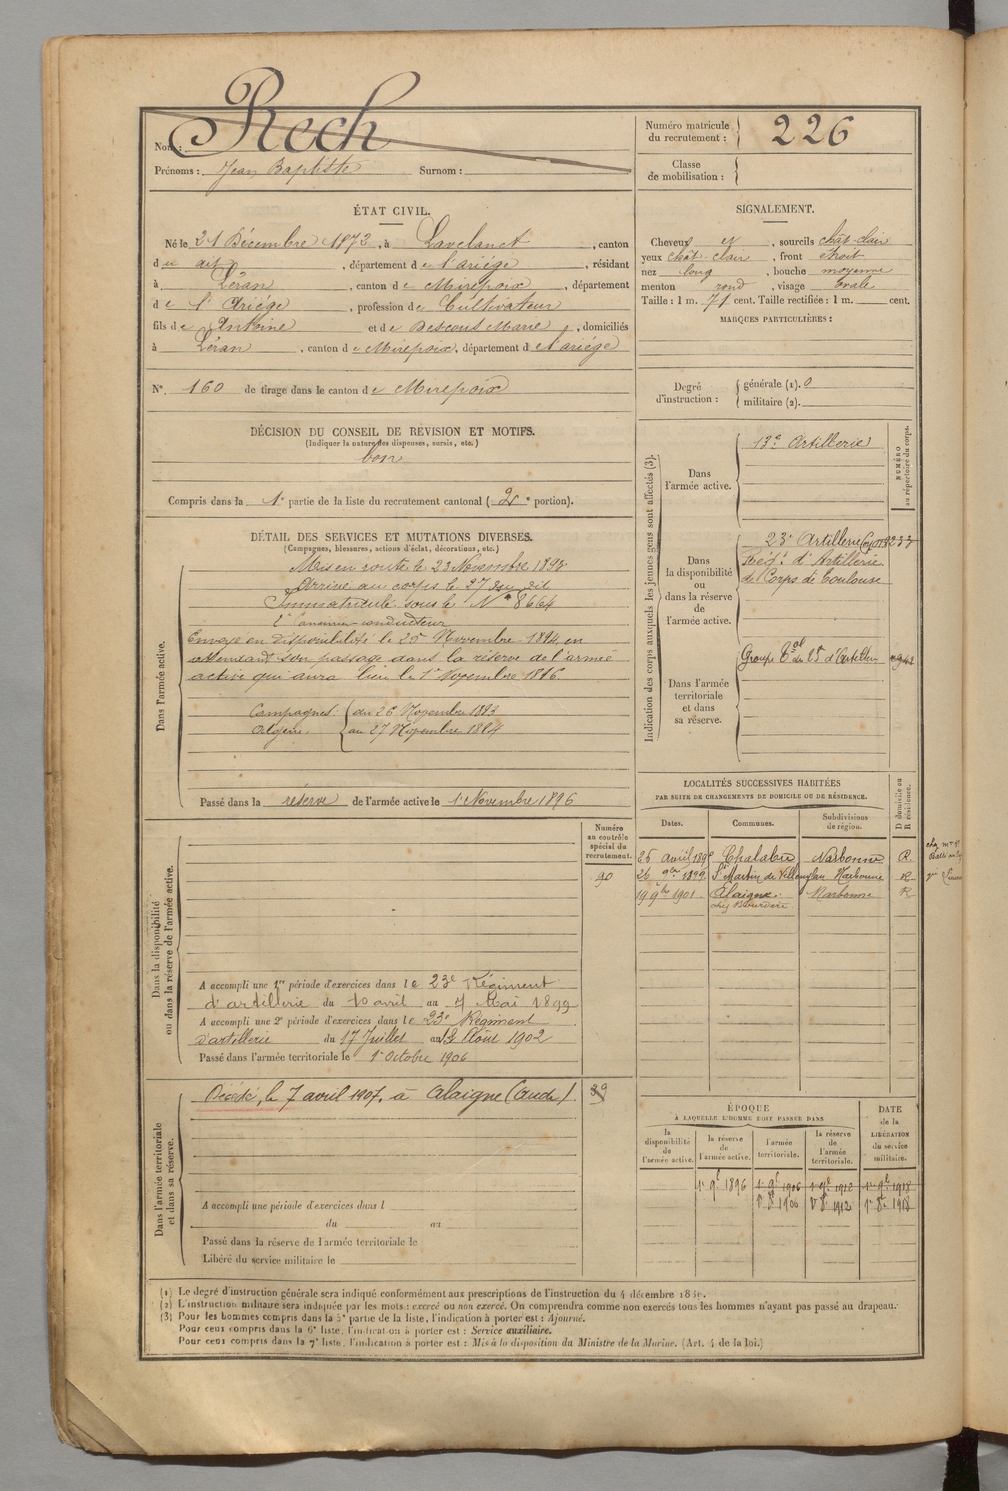 Rech
Nom :
Prénoms : Jean Baptiste Surnom :
Numéro matricule du recrutement : 226
Classe de mobilisation :
ÉTAT CIVIL.
Né le 21 Décembre 1872, à Lavelanet, canton
du dit, département de l'ariège, résidant
à Léran, canton de Mirepoix, département
de l'Ariège, profession de Cultivateur
fils de Antoine et de Descons Marie, domiciliés
à Léran, canton de Mirepoix, département de l'ariège
N°. 160 de tirage dans le canton de Mirepoix
SIGNALEMENT.
Cheveux et, sourcils chât-clair
yeux chât-clair, front étroit
nez long, bouche moyenne
menton rond, visage ovale
Taille : 1 m. 71 cent. Taille rectifiée : 1 m. cent.
MARQUES PARTICULIÈRES :
Degré d'instruction : générale (1). 0
militaire (2).
DÉCISION DU CONSEIL DE RÉVISION ET MOTIFS.
(Indiquer la nature des dispenses, sursis, etc.)
bon
Compris dans la 1e partie de la liste du recrutement cantonal (2e portion).
DÉTAIL DES SERVICES ET MUTATIONS DIVERSES.
(Campagnes, blessures, actions d'éclat, décorations, etc.)
Dans l'armée active.
Mis en route le 23 Novembre 1893
Arrivé au corps le 27 du dit
Immatriculé sous le N° 8664
2e Canonnier-conducteur
Envoyé en disponibilité le 25 Novembre 1894, en
attendant son passage dans la réserve de l'armée
active qui aura lieu le 1er Novembre 1896.
Campagnes : du 26 Novembre 1893
Algérie. au 27 Novembre 1894
Passé dans la réserve de l'armée active le 1 Novembre 1896
Indication des corps auxquels les jeunes gens sont affectés (3).
NUMÉRO au répertoire du corps.
Dans l'armée active.
13e Artillerie
Dans la disponibilité ou dans la réserve de l'armée active.
23e Artillerie
Régt d'Artillerie
de Corps de Toulouse
Dans l'armée territoriale et dans sa réserve.
Groupe Tal du 23e d'Artillerie
LOCALITÉS SUCCESSIVES HABITÉES
PAR SUITE DE CHANGEMENTS DE DOMICILE OU DE RÉSIDENCE.
Dates. Communes. Subdivisions de région. D domicile ou R résidence.
Chalabre Narbonne R.
26 9bre 1899 St Martin de Villereglan Narbonne R
19 9bre 1901 Alaigne. Narbonne R
Numéro au contrôle spécial du recrutement.
90
Dans la disponibilité ou dans la réserve de l'armée active.
A accompli une 1re période d'exercices dans le 23e Régiment
d'artillerie du 10 avril au 7 Mai 1899
A accompli une 2e période d'exercices dans le 23e Régiment
d'artillerie du 17 Juillet au 13 Août 1902
Passé dans l'armée territoriale le 1er Octobre 1906
Dans l'armée territoriale et dans sa réserve.
Décédé, le 7 avril 1907, à Alaigne (Aude)
39
A accompli une période d'exercices dans l
du au
Passé dans la réserve de l'armée territoriale le
Libéré du service militaire le
ÉPOQUE
À LAQUELLE L'HOMME DOIT PASSER DANS
la disponibilité de l'armée active. la réserve de l'armée active. l'armée territoriale. la réserve de l'armée territoriale. DATE de la LIBÉRATION du service militaire.
1er 9bre 1896 1er 9bre 1906 1er 9bre 1912 1er 9bre 1918
1er 8bre 1906 1er 8bre 1912 1er 8bre 1918
(1) Le degré d'instruction générale sera indiqué conformément aux prescriptions de l'instruction du 4 décembre 1889.
(2) L'instruction militaire sera indiquée par les mots : exercé ou non exercé. On comprendra comme non exercés tous les hommes n'ayant pas passé au drapeau.
(3) Pour les hommes compris dans la 5e partie de la liste, l'indication à porter est : Ajourné.
Pour ceux compris dans la 6e liste, l'indication à porter est : Service auxiliaire.
Pour ceux compris dans la 7e liste, l'indication à porter est : Mis à la disposition du Ministre de la Marine. (Art. 4 de la loi.)